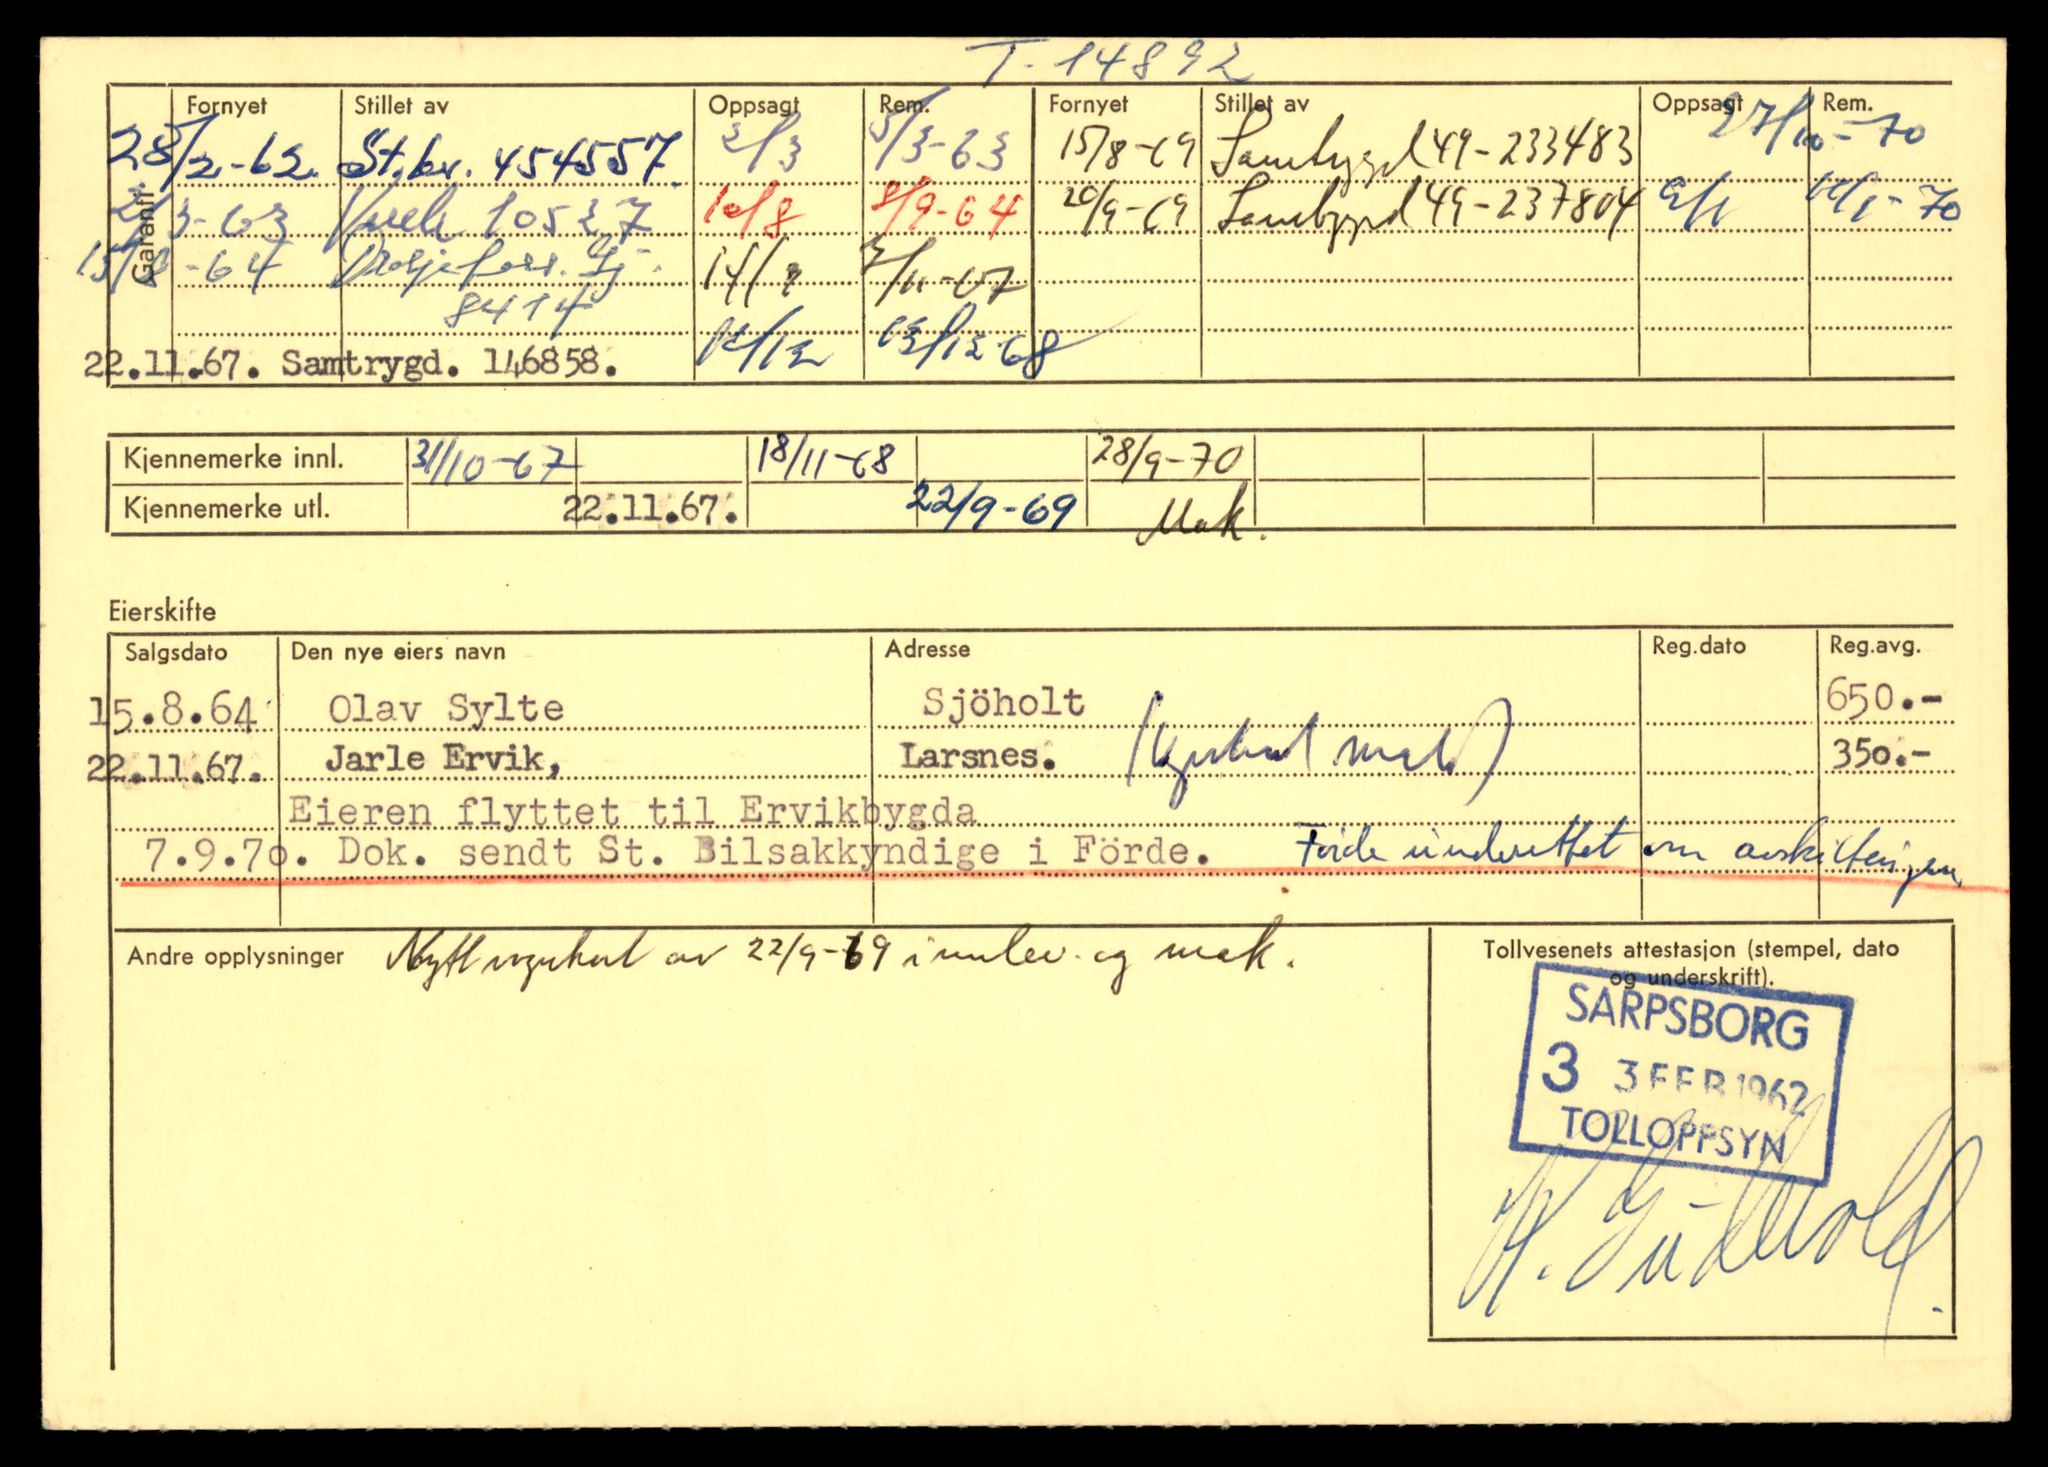 T- 14892
Garanti Fornyet Stillet av Oppsagt Rem. Fornyet Stillet av Oppsagt Rem.
28/2-62. St.br. 454557. 2/3 5/3-63 15/8-69 Samtrygd 49-233483 27/10-70
3-63 10527 10/8 8/9-64 20/9-69 Samtrygd 49-237804 9/1 -70
15/8-64 8414
22.11.67. Samtrygd. 146858. 12/12 13/12-68
Kjennemerke innl. 31/10-67 18/11-68 28/9-70
Kjennemerke utl. 22.11.67. 22/9-69 Mak.
Eierskifte
Salgsdato Den nye eiers navn Adresse Reg.dato Reg.avg.
15.8.64 Olav Sylte Sjöholt 650.-
22.11.67. Jarle Ervik, Larsnes. (vognkort mak.) 350.-
Eieren flyttet til Ervikbygda
7.9.70. Dok. sendt St. Bilsakkyndige i Förde. Förde underettet om avskiltingen.
Andre opplysninger Nytt vognkort av 22/9-69 innlev. og mak.
Tollvesenets attestasjon (stempel, dato
og underskrift).
SARPSBORG
3 3 FEB 1962
TOLLOPPSYN